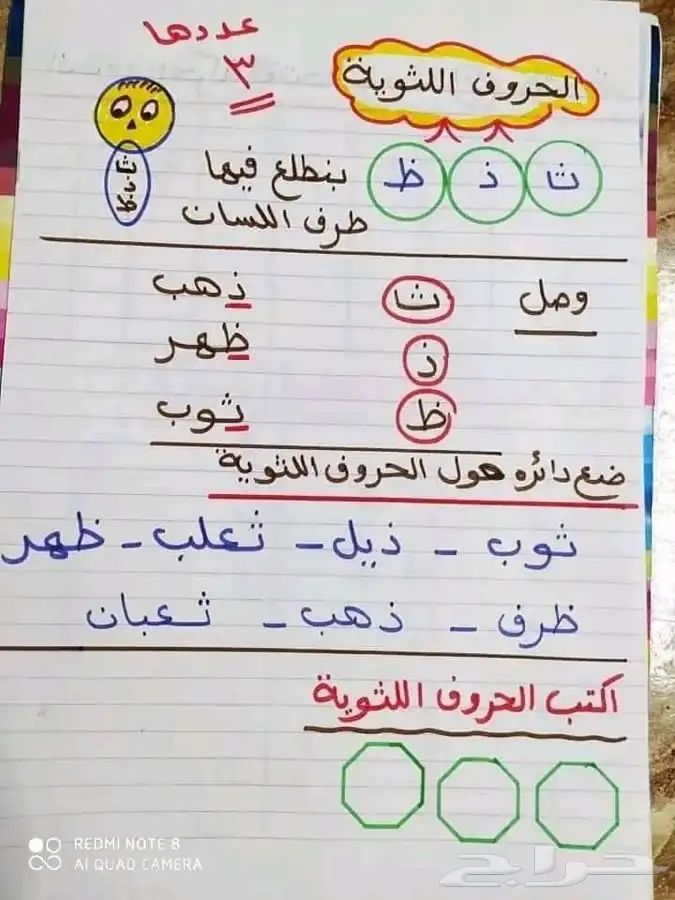 عددها
٣
الحروف اللثوية
ث ذ ظ
بنطلع فيها
طرف اللسان
ث
ذ
ظ
وصل
ث ذهب
ذ ظهر
ظ ثوب
ضع دائره حول الحروف اللثوية
ثوب - ذيل - ثعلب - ظهر
ظرف - ذهب - ثعبان
اكتب الحروف اللثوية
REDMI NOTE 8
AI QUAD CAMERA
حراج